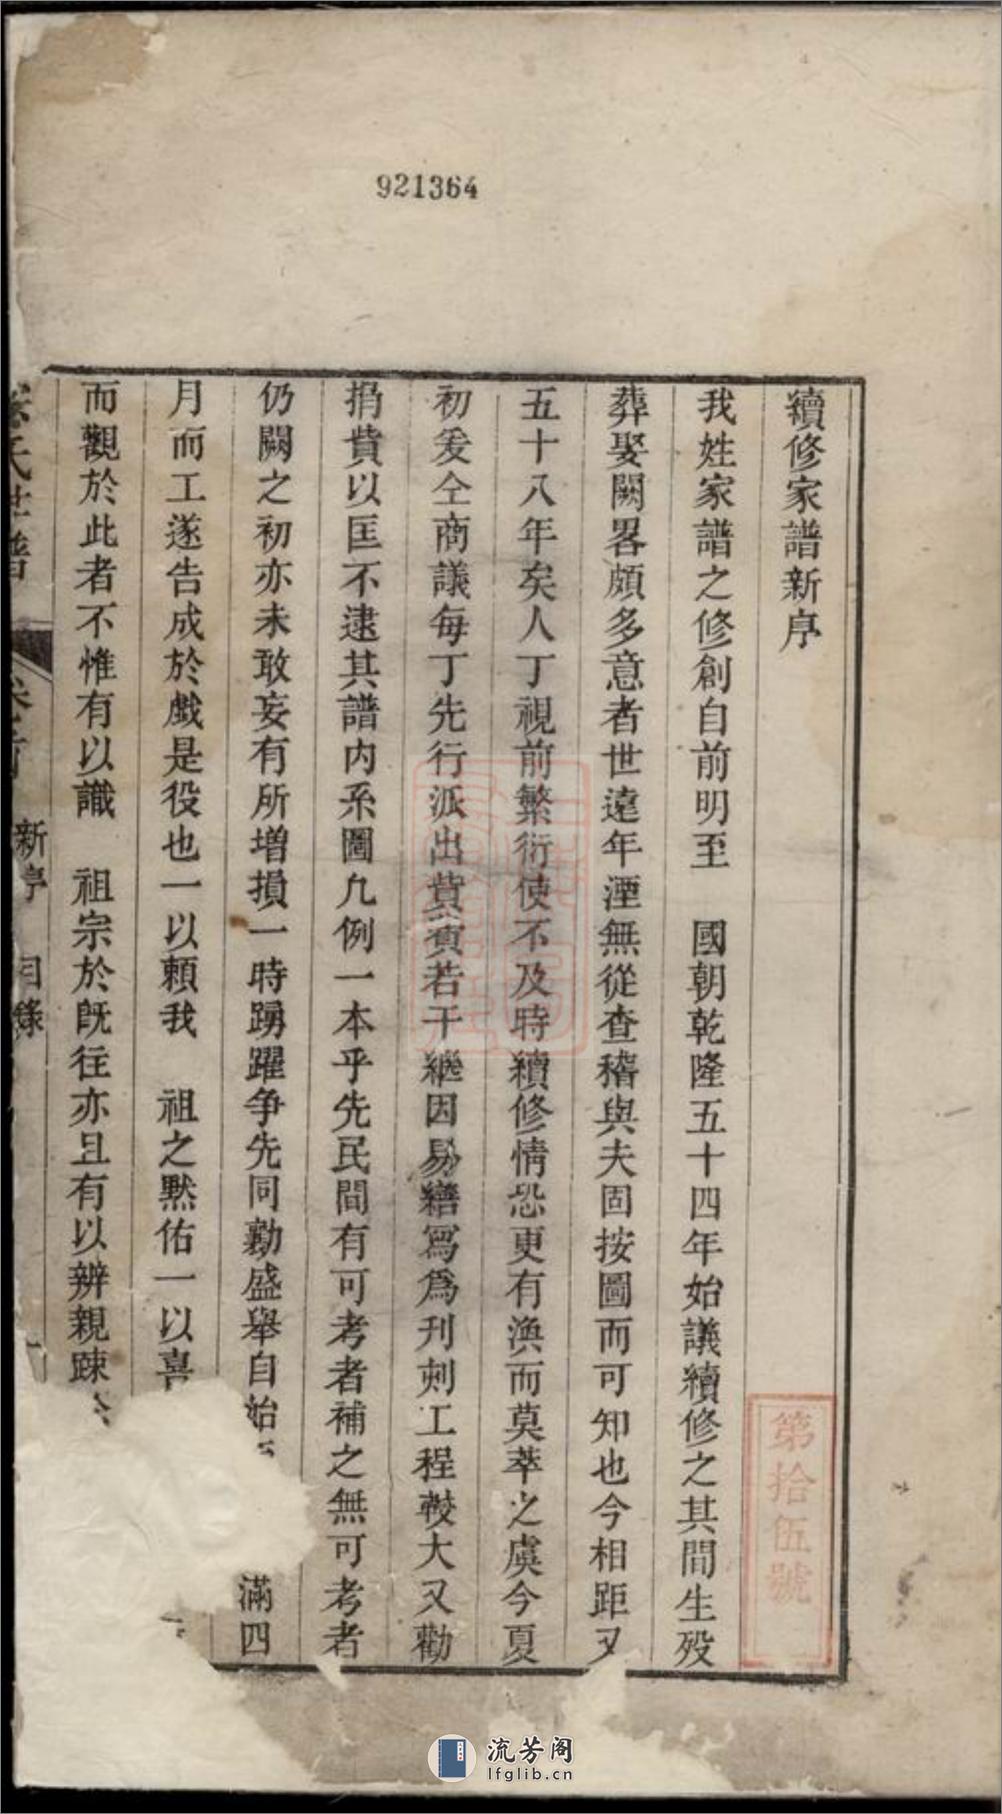 921364
續修家譜新序
我姓家譜之修創自前明至　國朝乾隆五十四年始議續修之其間生殁
葬娶闕畧頗多意者世遠年湮無從查稽與夫固按圖而可知也今相距又
五十八年矣人丁視前繁衍使不及時續修情恐更有渙而莫萃之虞今夏
初爰仝商議每丁先行派出貲費若干繼因易繕寫爲刋刺工程較大又勸
捐貲以匡不逮其譜内系圖凢例一本乎先民間有可考者補之無可考者
仍闕之初亦未敢妄有所增損一時踴躍争先同勷盛舉自始滿四
月而工遂告成於戲是役也一以頼我　祖之黙佑一以喜
而觀於此者不惟有以識　祖宗於旣往亦且有以辨親踈
氏世譜　卷首　新序　目錄
第拾伍號
流芳阁
lfglib.cn